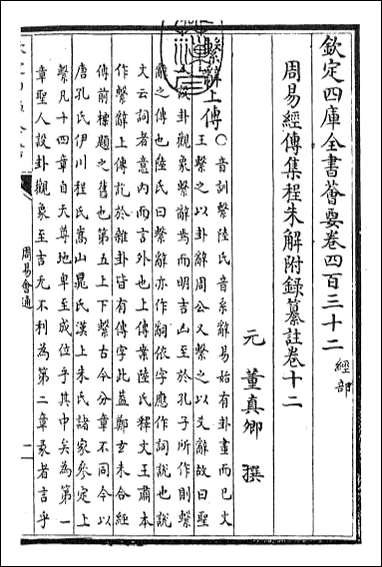 欽定四庫全書薈要卷四百三十二 經部
周易經傳集程朱解附錄纂註卷十二
元 董真卿 撰
繫辭上傳 ○音訓繫陸氏音系辭易始有卦畫而已文
王繫之以卦辭周公又繫之以爻辭故曰聖
設卦觀象繫辭焉而明吉凶至於孔子所作則繫
辭之傳也陸氏曰繫辭亦作嗣依字應作詞說也說
文云詞者意内而言外也上傳業陸氏釋文王肅本
作繫辭上傳訖於雜卦皆有傳字此蓋鄭玄未合經
傳前標題之舊也第五上下繫古今分章不同今以
唐孔氏伊川程氏嵩山晁氏漢上朱氏諸家參定上
繫凡十四章自天尊地卑至成位乎其中矣為第一
章聖人設卦觀象至吉无不利為第二章彖者言乎
周易會通
一